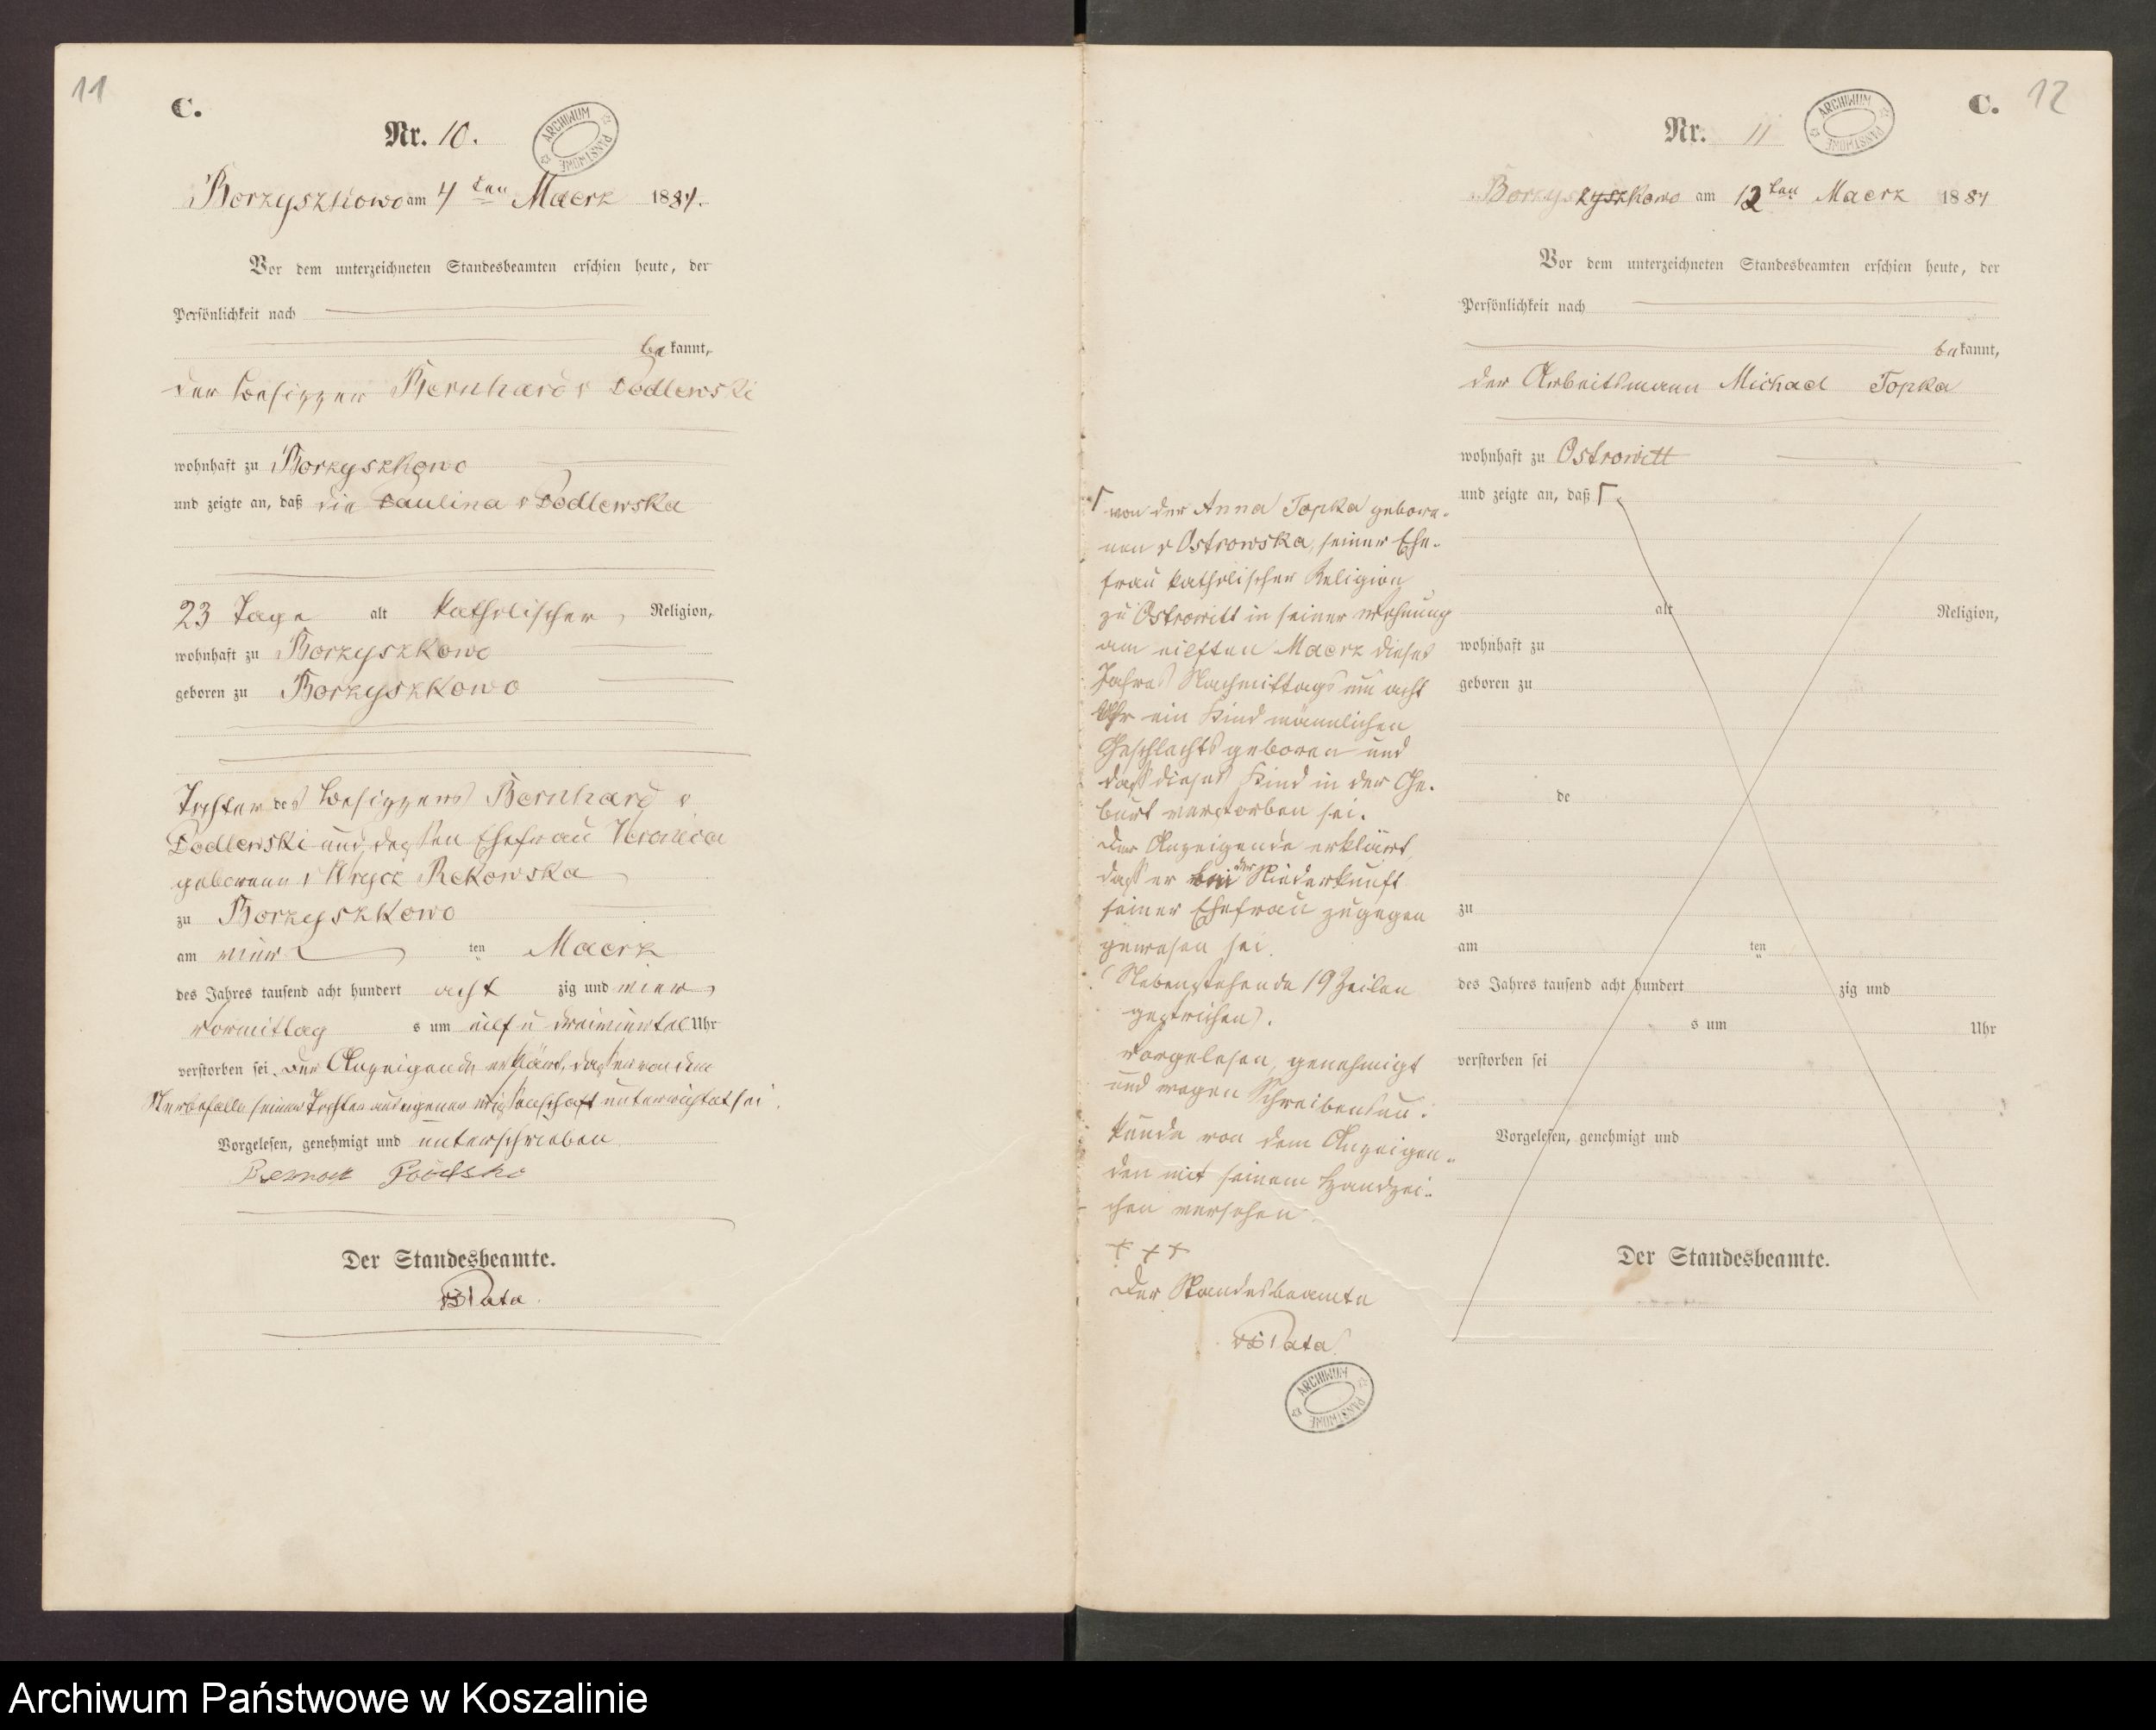 11
C.
Nr. 10.
ARCHIWUM PAŃSTWOWE
Borzyszkowo am 4 ten Maerz 1884.
Vor dem unterzeichneten Standesbeamten erschien heute, der
Persönlichkeit nach
bekannt,
der Besizzer Bernhard v Podlewski
wohnhaft zu Borzyszkowo
und zeigte an, daß die Paulina v Podlewska
23 Tage alt katholischer Religion,
wohnhaft zu Borzyszkowo
geboren zu Borzyszkowo
Tochter des Besizzers Bernhard v
Podlewski und dessen Ehefrau Veronica
geborene v Wrycz Rekowska
zu Borzyszkowo
am vier ten Maerz
des Jahres tausend acht hundert acht zig und vier
vormittag s um eilf u dreiviertel Uhr
verstorben sei. Der Anzeigende erklärt, daß er von dem
Sterbefalle seiner Tochter aus eigener Wissenschaft unterrichtet sei.
Vorgelesen, genehmigt und unterschrieben
Der Standesbeamte.
Pata
12
C.
Nr. 11
ARCHIWUM PAŃSTWOWE
Borzyszkowo am 12 ten Maerz 1884
Vor dem unterzeichneten Standesbeamten erschien heute, der
Persönlichkeit nach
bekannt,
der Arbeitsmann Michael Topka
wohnhaft zu Ostrowitt
und zeigte an, daß
von der Anna Topka gebore-
nen v Ostrowska, seiner Ehe-
frau katholischer Religion
zu Ostrowitt in seiner Wohnung
am eilften Maerz dieses
Jahres Nachmittags um acht
Uhr ein Kind männlichen
Geschlechts geboren und
daß dieses Kind in der Ge-
burt verstorben sei.
Der Anzeigende erklärt,
daß er bei der Niederkunft
seiner Ehefrau zugegen
gewesen sei.
(Nebenstehende 19 Zeilen
gestrichen).
Vorgelesen, genehmigt
und wegen Schreibensun-
kunde von dem Anzeigen-
den mit seinem Handzei-
chen versehen
+ + +
Der Standesbeamte
Pata
ARCHIWUM PAŃSTWOWE
alt Religion,
wohnhaft zu
geboren zu
de
zu
am ten
des Jahres tausend acht hundert zig und
s um Uhr
verstorben sei
Vorgelesen, genehmigt und
Der Standesbeamte.
Archiwum Państwowe w Koszalinie